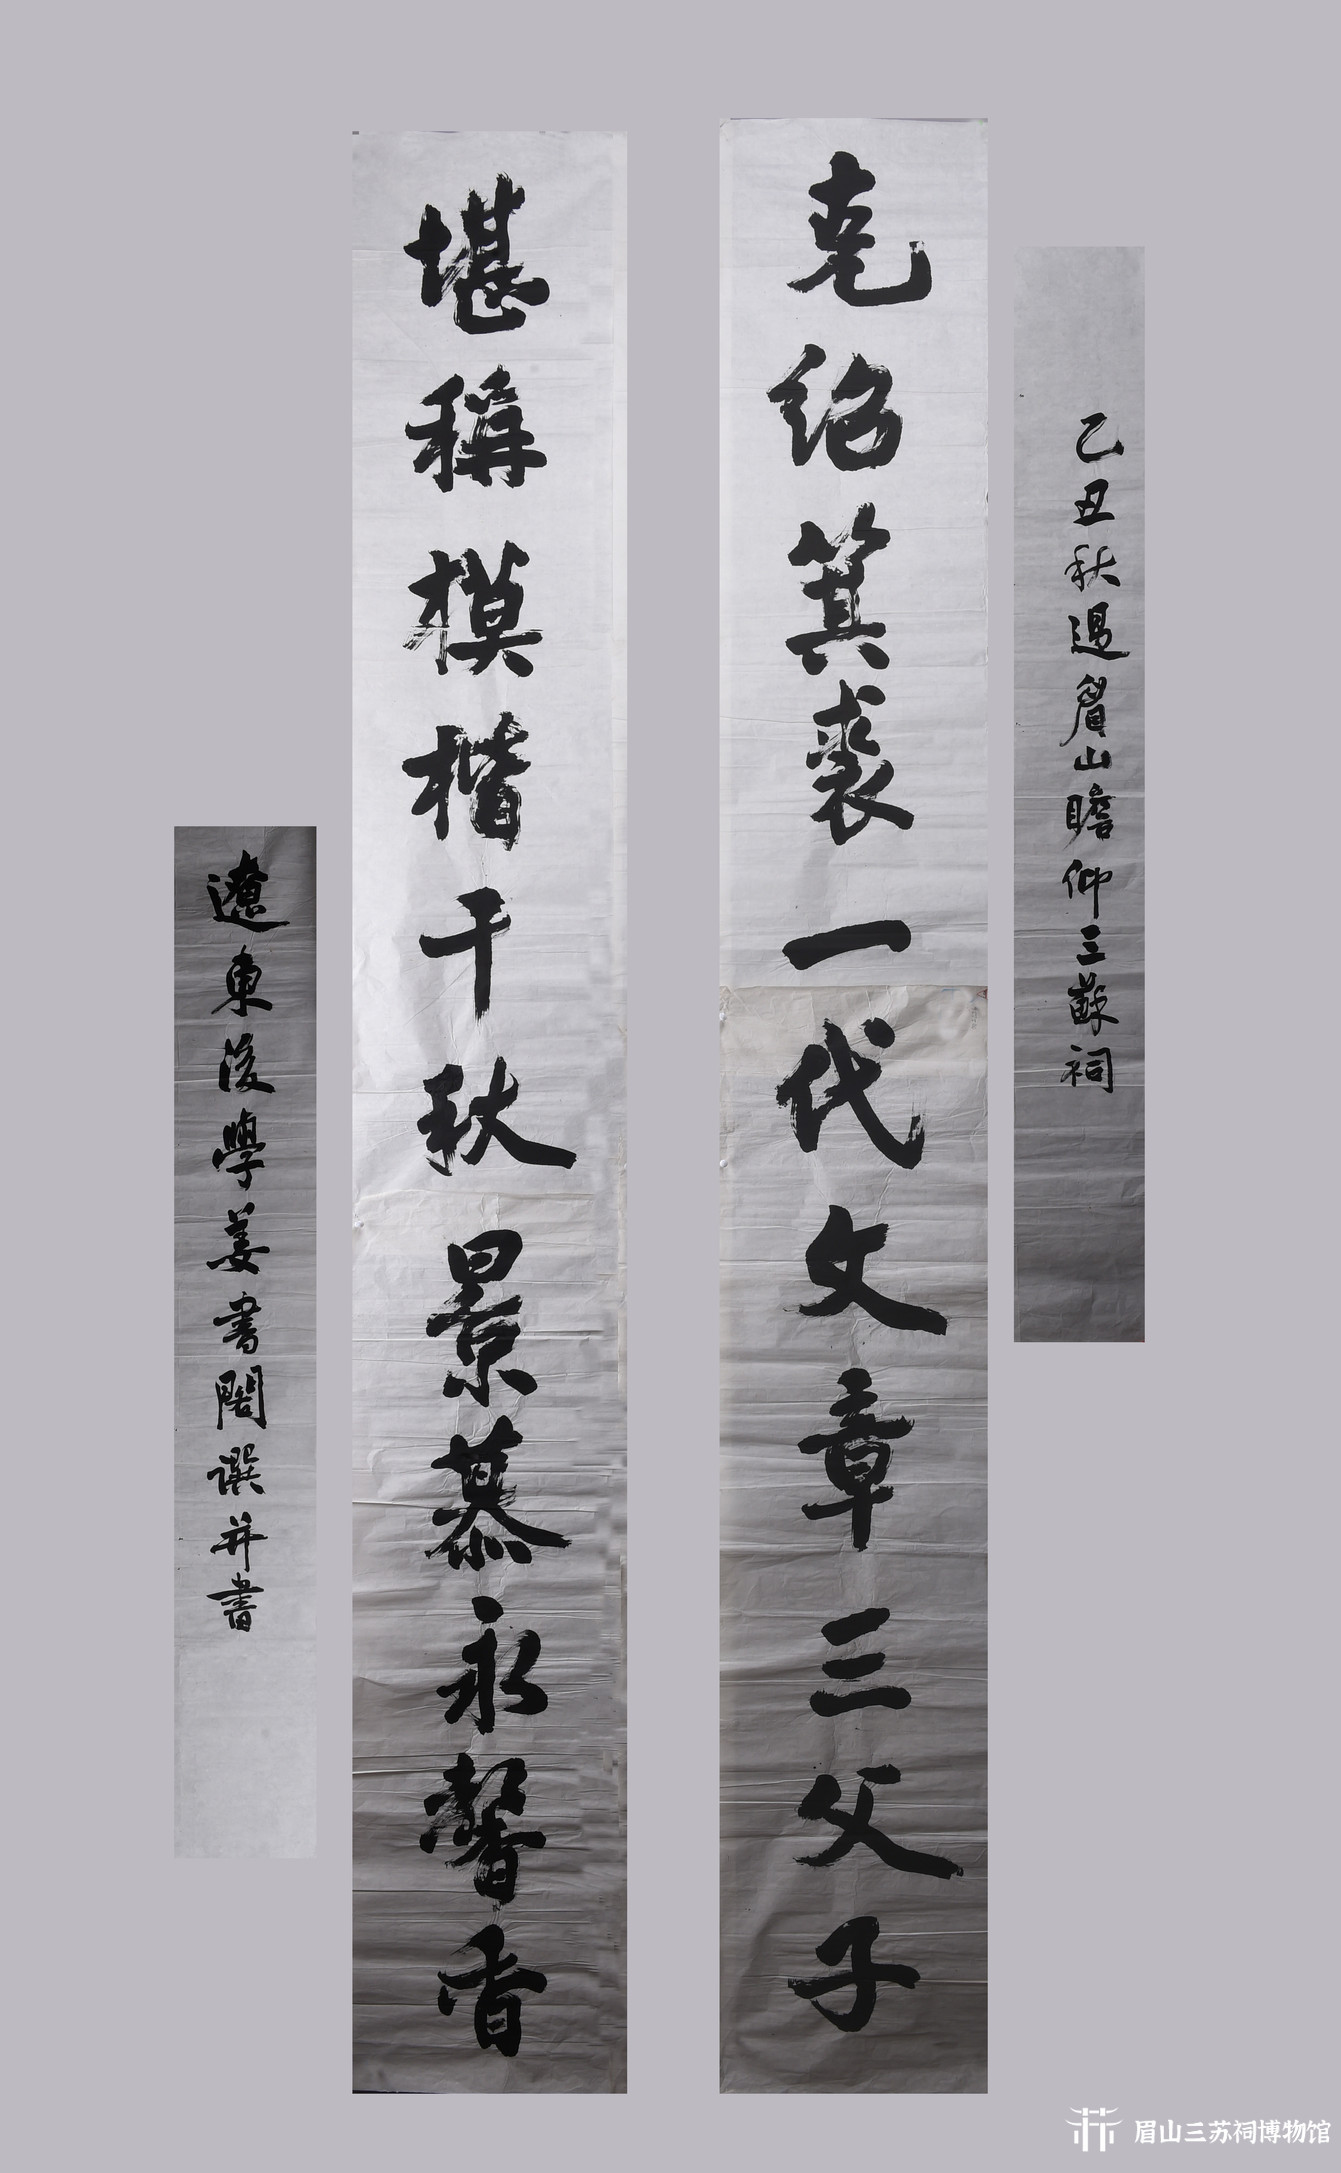 乙丑秋過眉山瞻仰三蘇祠
克紹箕裘一代文章三父子
堪稱模楷千秋景慕永馨香
遼東後學姜書閣撰并書
眉山三苏祠博物馆